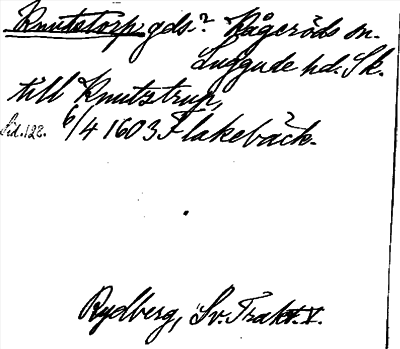 Knutstorp gds.? Kågeröds sn.
Luggude hd. Sk.
till Knutstrup,
Sid. 122. 6/4 1603 Flakebäck.
Rydberg, Sv. Trakt. V.